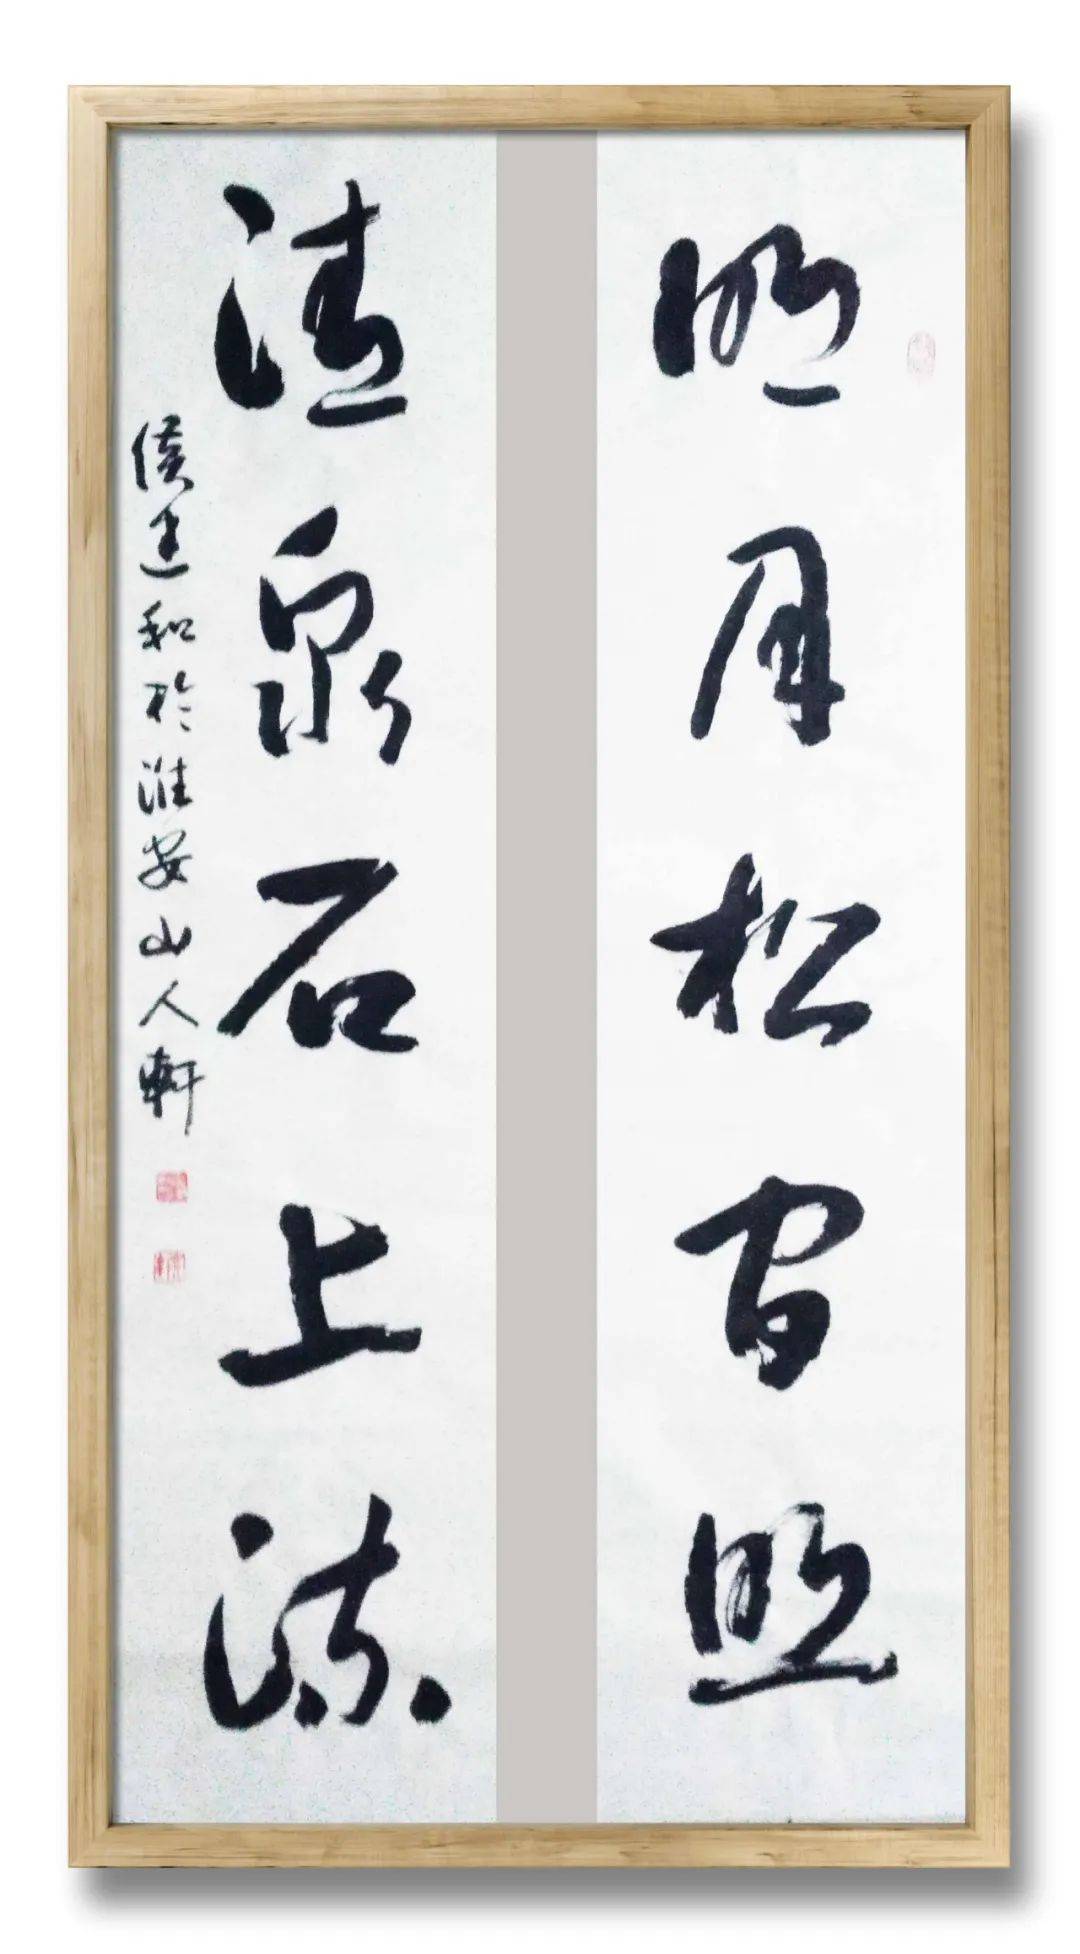 明月松間照
清泉石上流
侯建和於淮安山人軒